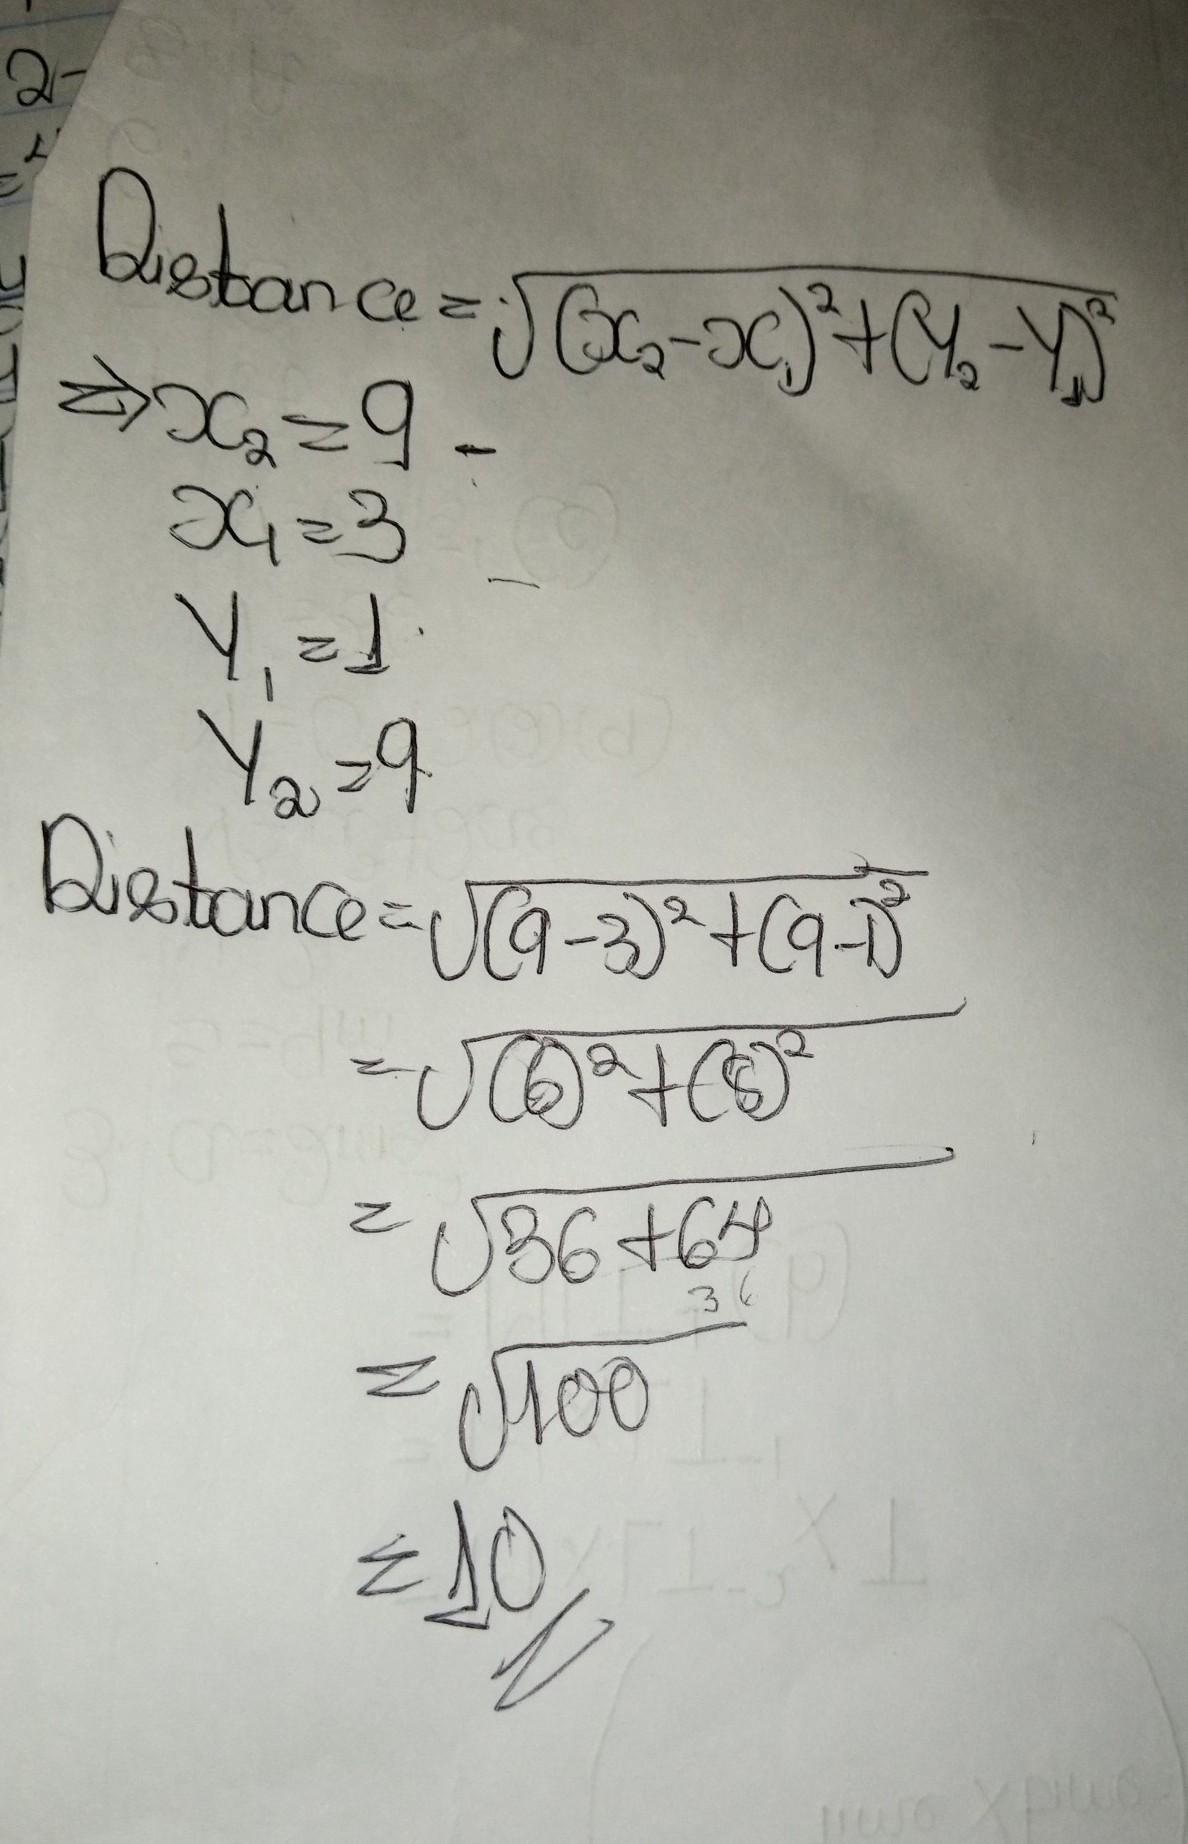 2-
Distance = √(x₂-x₁)²+(y₂-y₁)²
⇒ x₂ = 9
x₁ = 3
y₁ = 1
y₂ = 9
Distance = √(9-3)²+(9-1)²
= √(6)²+(8)²
= √36+64
36
= √100
= 10